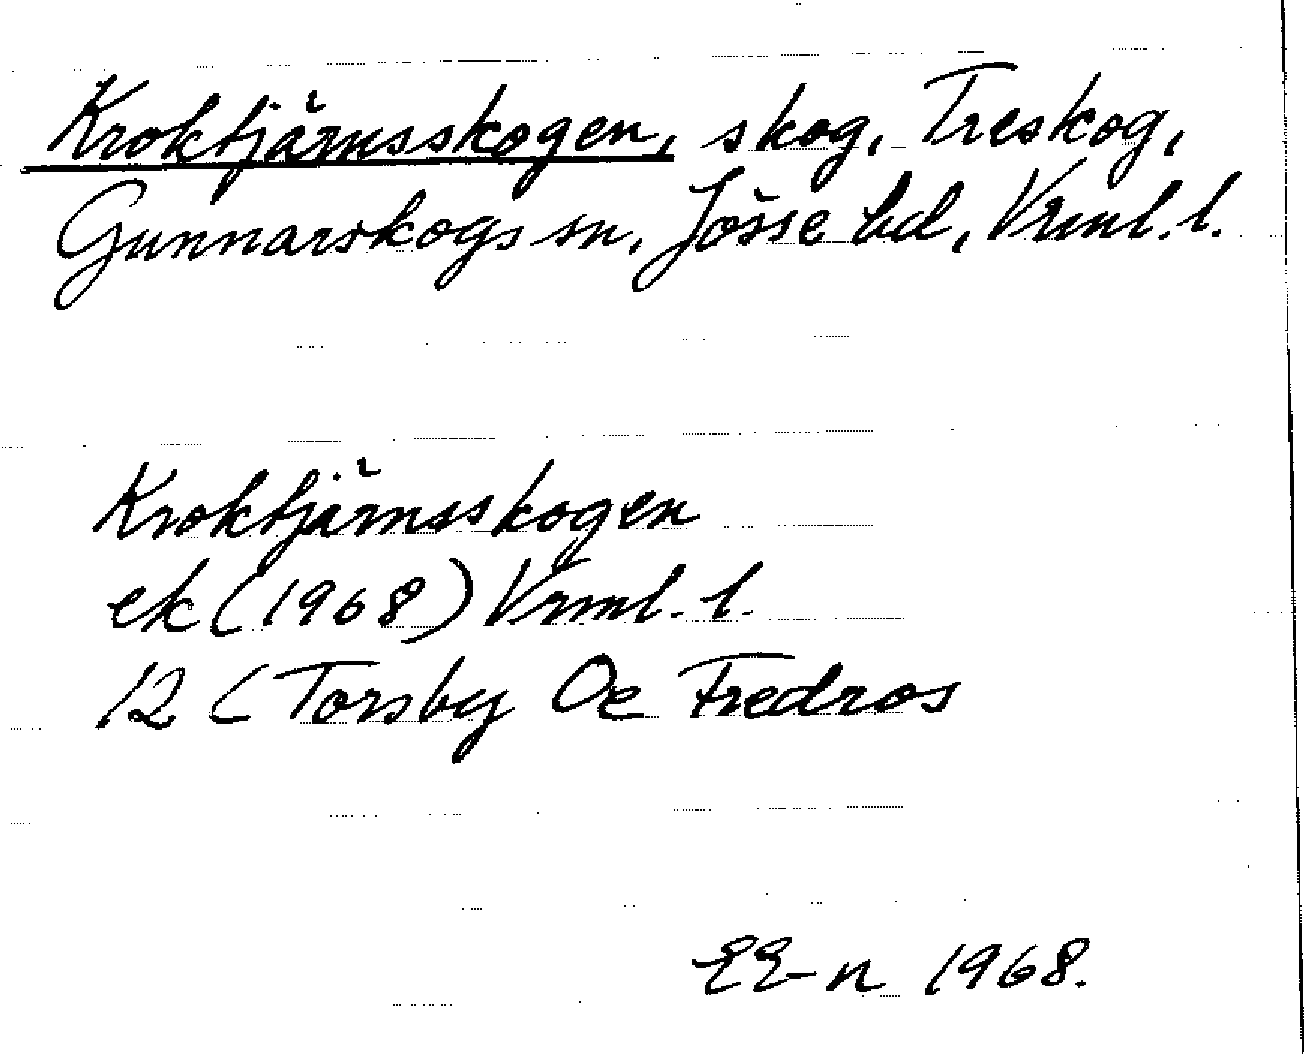 Kroktjärnsskogen, skog, Treskog,
Gunnarskogs sn, Jösse hd, Vrml. l.
Kroktjärnsskogen
ek (1968) Vrml. l.
12 C Torsby Oe Fredros
EE-n 1968.